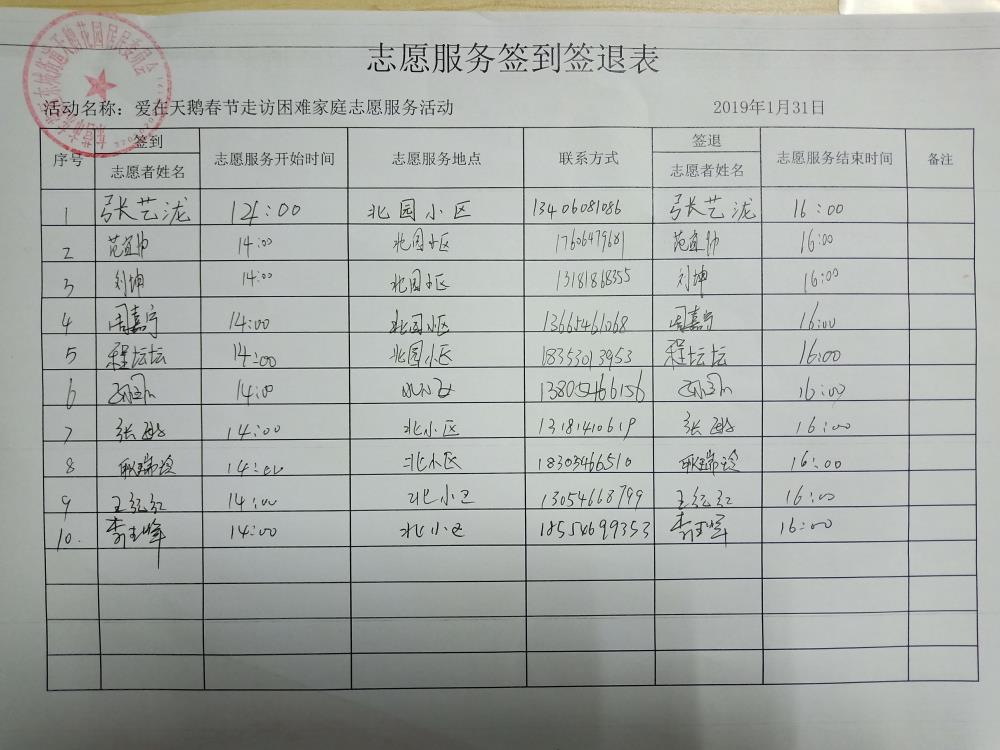 志愿服务签到签退表
活动名称：爱在天鹅春节走访困难家庭志愿服务活动 2019年1月31日
序号 签到 志愿者姓名 志愿服务开始时间 志愿服务地点 联系方式 签退 志愿者姓名 志愿服务结束时间 备注
1 张艺泷 14:00 北园小区 13406081086 张艺泷 16:00
2 范宜帅 14:00 北园小区 17606479681 范宜帅 16:00
3 刘坤 14:00 北园小区 13181868355 刘坤 16:00
4 周嘉宁 14:00 北园小区 13665461068 周嘉宁 16:00
5 程坛坛 14:00 北园小区 18353013953 程坛坛 16:00
6 14:00 13805466156 16:00
7 张 14:00 北小区 13181410619 张 16:00
8 耿瑞玲 14:00 北小区 18303466510 耿瑞玲 16:00
9 王红红 14:00 北小区 13054668799 王红红 16:00
10. 李玉峰 14:00 北小区 18554699353 李玉峰 16:00